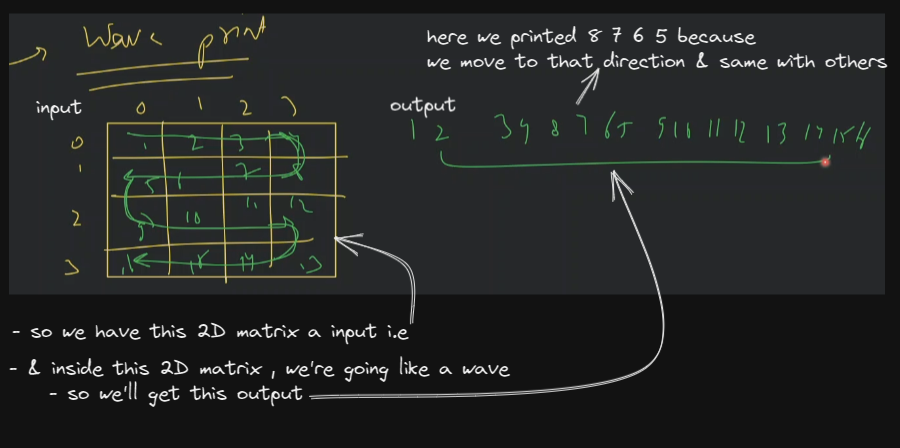 Wave print
here we printed 8 7 6 5 because
we move to that direction & same with others
input
0 1 2 3
output
1 2 3 4 8 7 6 5 9 10 11 12 13 14 15
0 1 2 3
1 5 7
2 9 10 11 12
3 14 13
- so we have this 2D matrix a input i.e
- & inside this 2D matrix , we're going like a wave
- so we'll get this output